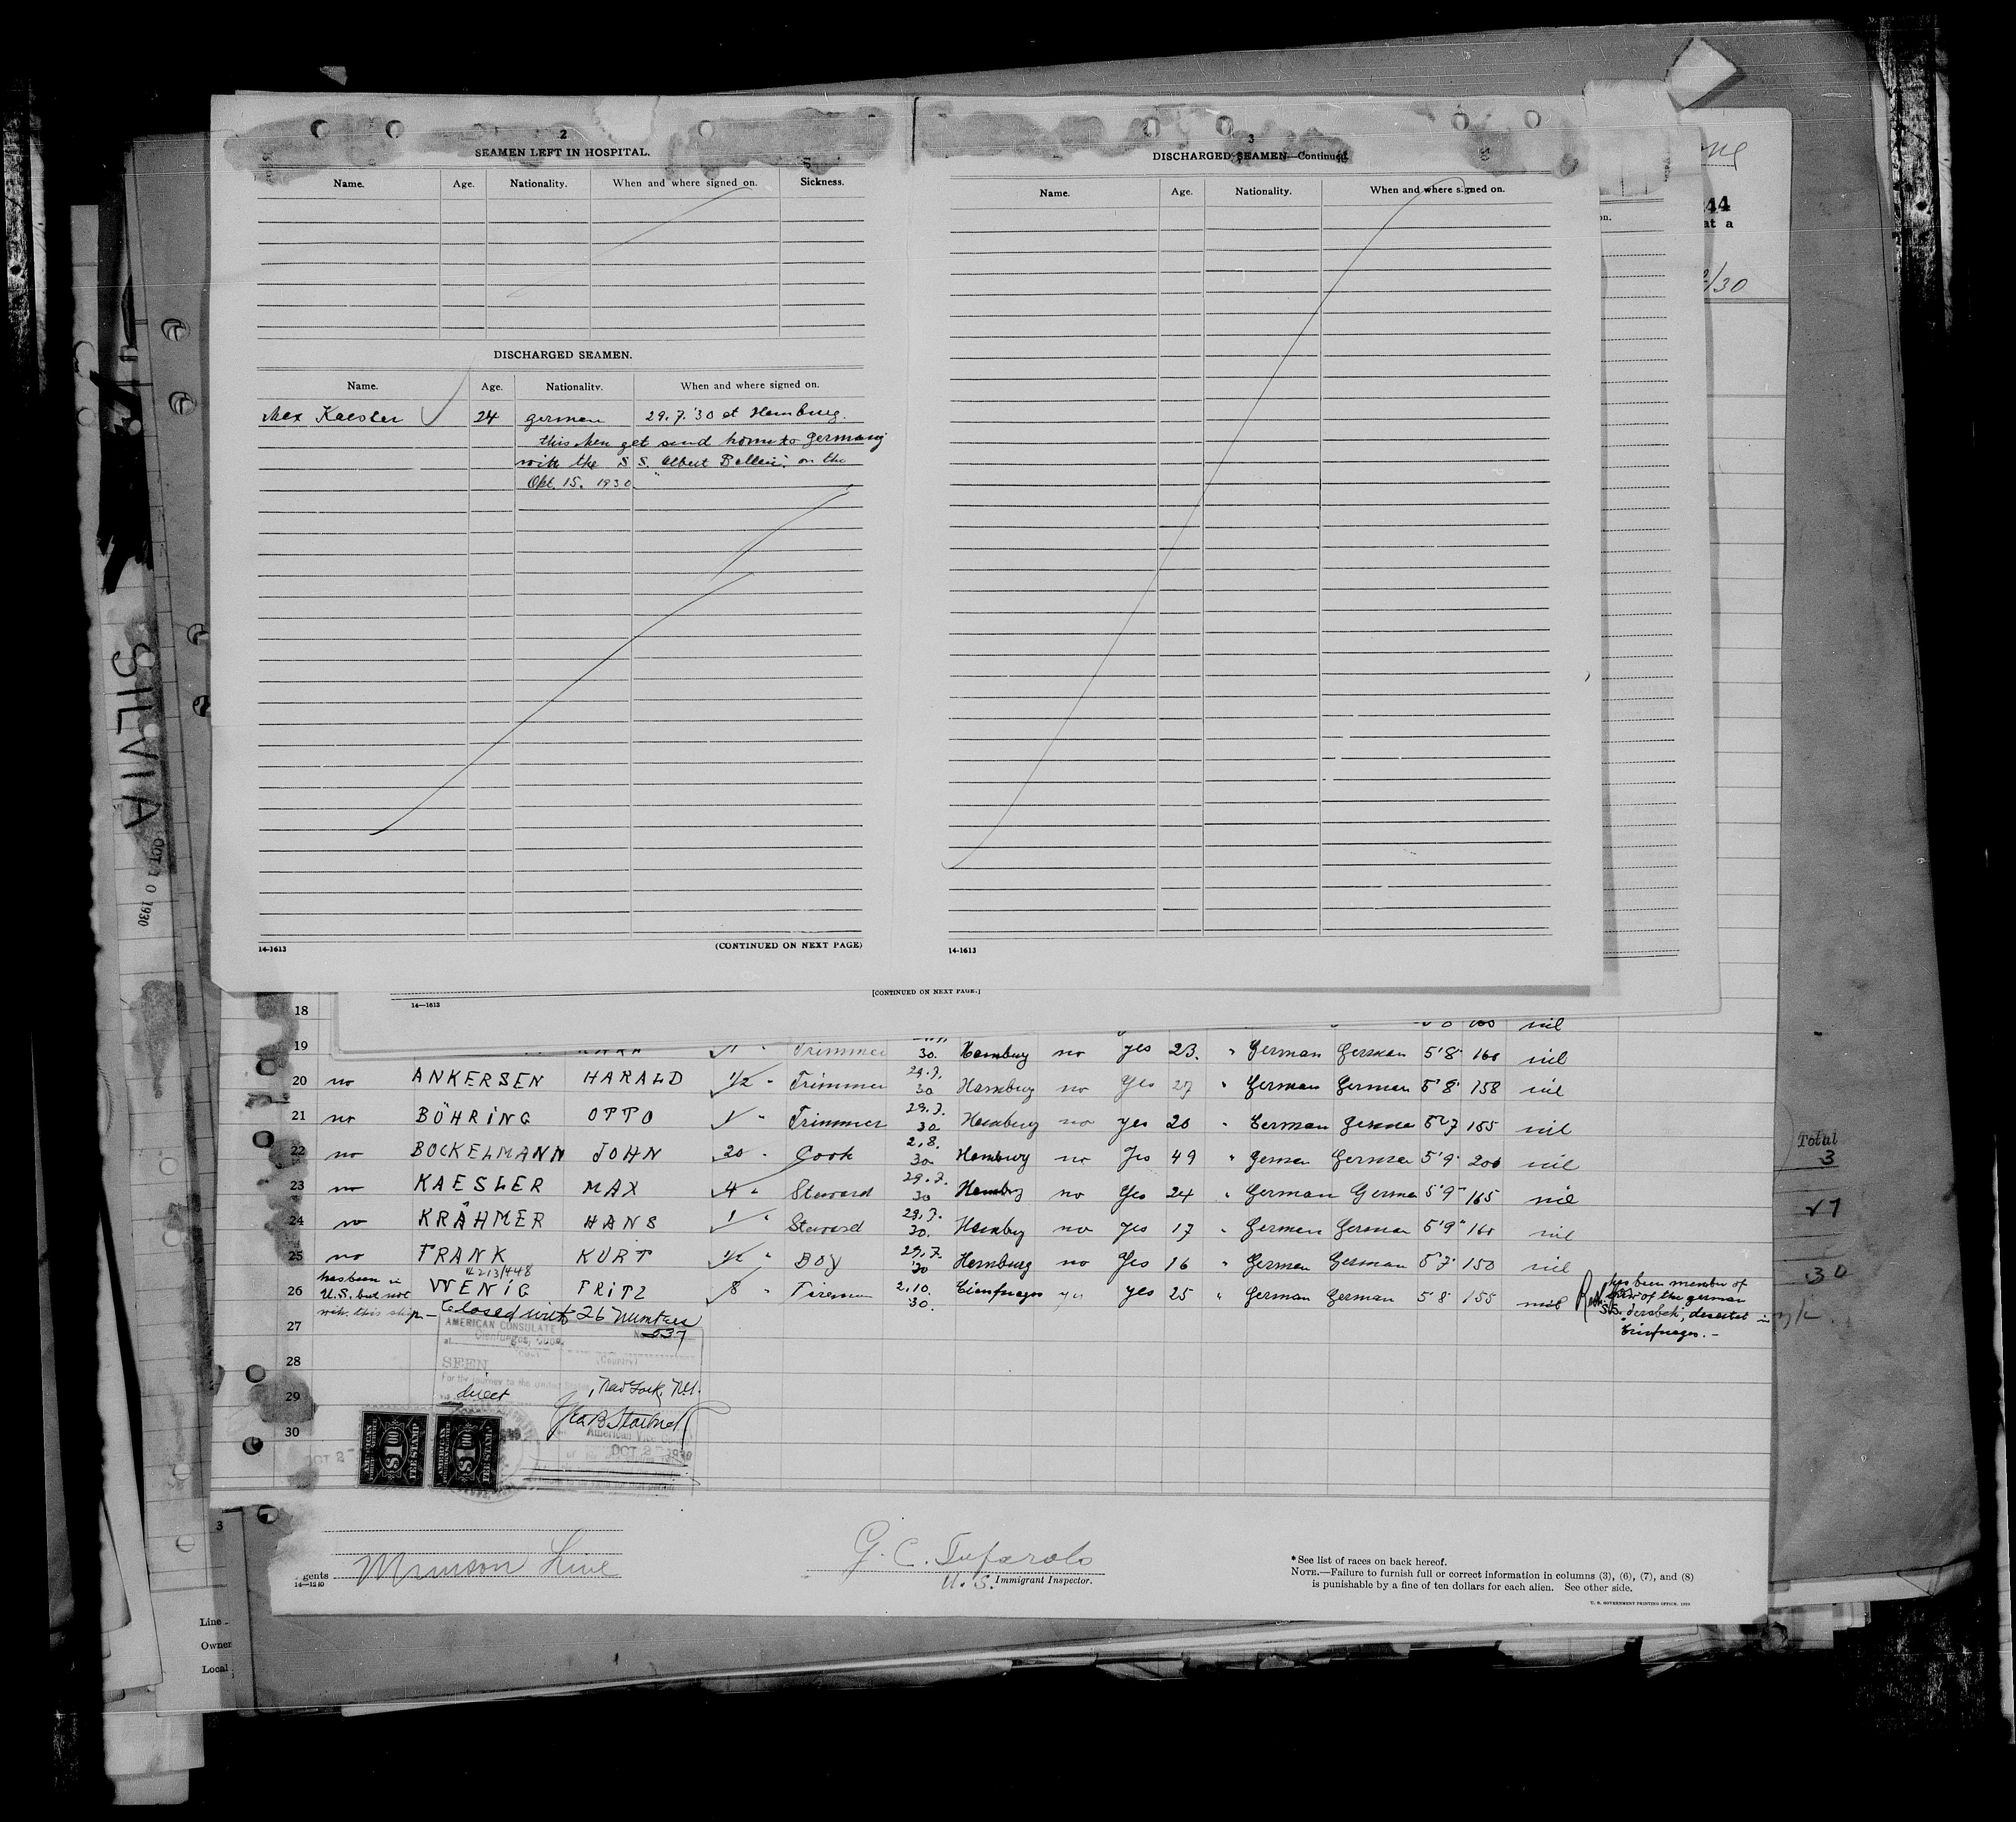 2
SEAMEN LEFT IN HOSPITAL.
Name. Age. Nationality. When and where signed on. Sickness.
DISCHARGED SEAMEN.
Name. Age. Nationality. When and where signed on.
Max Kaesler 24 german 29.7.'30 at Hamburg.
this Men get send home to Germany
with the S S. Albert Ballin. on the
Okt. 15. 1930.
14-1613
(CONTINUED ON NEXT PAGE)
3
DISCHARGED SEAMEN—Continued.
Name. Age. Nationality. When and where signed on.
14-1613
on.
44
at a
/30
SILVIA
1930
[CONTINUED ON NEXT PAGE.]
14—1613
18 nil
19 Trimmer 30. Hamburg no yes 23. " German German 5'8" 160 nil
20 no ANKERSEN HARALD 1/2 " Trimmer 29.7. 30 Hamburg no Yes 27 " German German 5'8" 158 nil
21 no BÖHRING OTTO 1 " Trimmer 29.7. 30 Hamburg no yes 20 " German German 5'7 155 nil
22 no BOCKELMANN JOHN 20 " Cook 2.8. 30 Hamburg no Yes 49 " German German 5'9" 200 nil
23 no KAESLER MAX 4 " Steward 29.7. 30 Hamburg no Yes 24 " German German 5'9" 165 nil
24 no KRÄHMER HANS 1 " Steward 29.7. 30. Hamburg no Yes 17 " German German 5'9" 160 nil
25 no FRANK KURT 1/2 " BOY 29.7. '30 Hamburg no Yes 16 " German German 5'7" 150 nil
26 has been in U.S. but not with this ship WENIG FRITZ 8 " Fireman 2.10. 30. Cienfuegos yes 25 " German German 5'8" 155 nil
has been member of
crew of the german
S/S. desertet in
Cienfuegos.-
Closed with 26 Numbers
27
AMERICAN CONSULATE
537
at Cienfuegos, Cuba.
(Country)
28
SEEN
For the journey to the United States
29
direct New York, N.Y.
30
American Vice Consul
OCT 2 - 1930
AMERICAN $1.00 FEE STAMP
AMERICAN $1.00 FEE STAMP
Total
3
27
30
3
gents Munson Line
14—1240
G. C. Tufarolo
U. S. Immigrant Inspector.
*See list of races on back hereof.
NOTE.—Failure to furnish full or correct information in columns (3), (6), (7), and (8)
is punishable by a fine of ten dollars for each alien. See other side.
U. S. GOVERNMENT PRINTING OFFICE
Line
Owner
Local